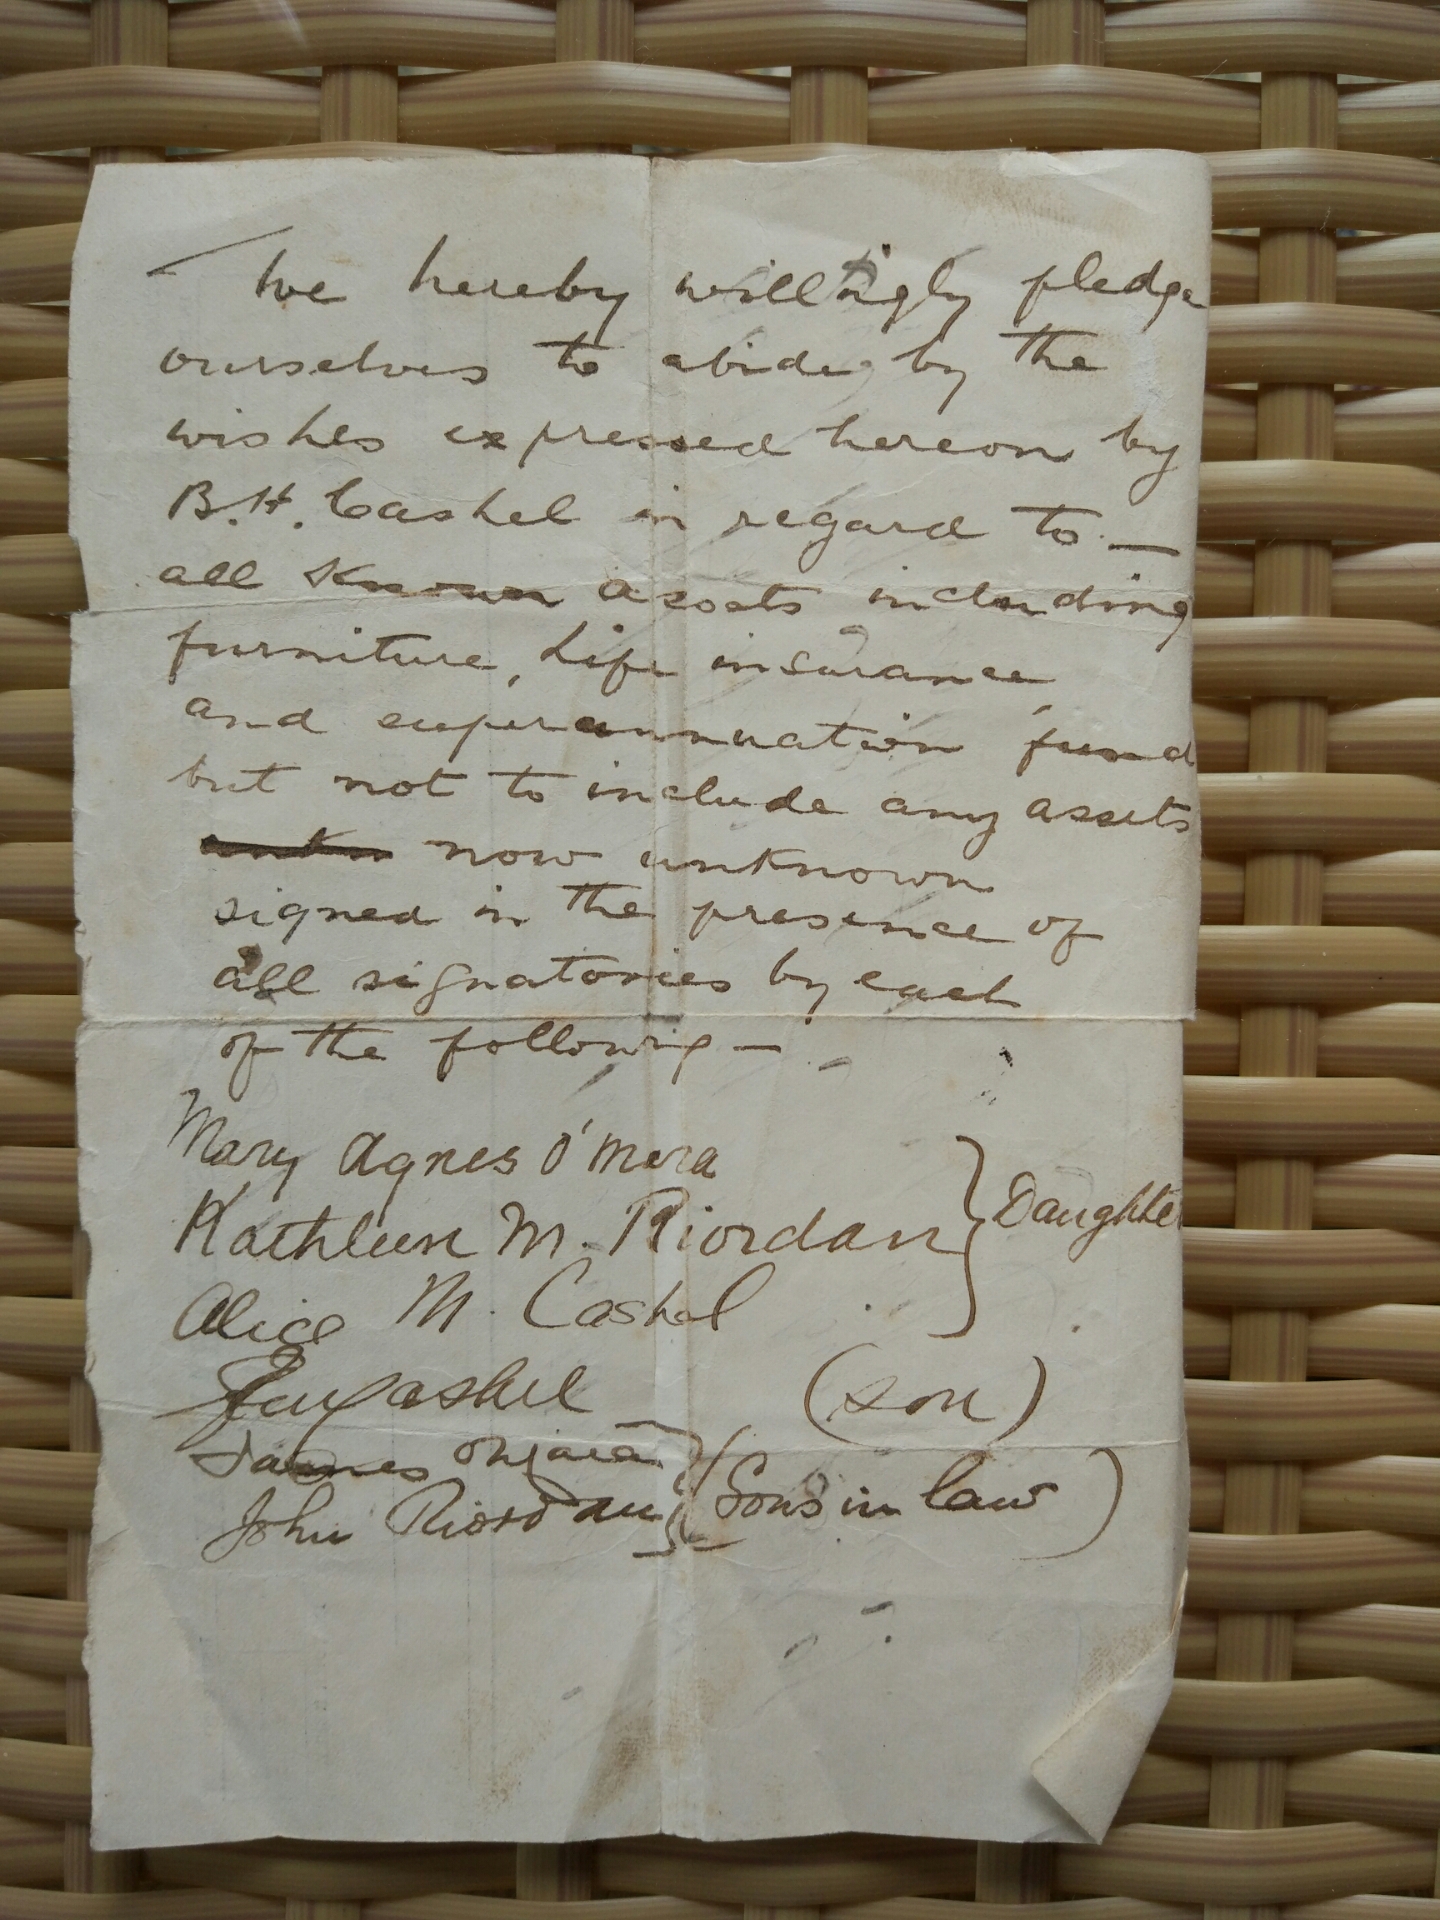 We hereby willingly pledge
ourselves to abide by the
wishes expressed hereon by
B.H. Cashel in regard to —
all known assets including
furniture, Life insurance
and superannuation fund
but not to include any assets
now unknown
signed in the presence of
all signatories by each
of the following —
Mary Agnes O'Mara
Kathleen M. Riordan } Daughter
Alice M. Cashel
Cashel (son)
James O'Mara
John Riordan } (Sons in law)